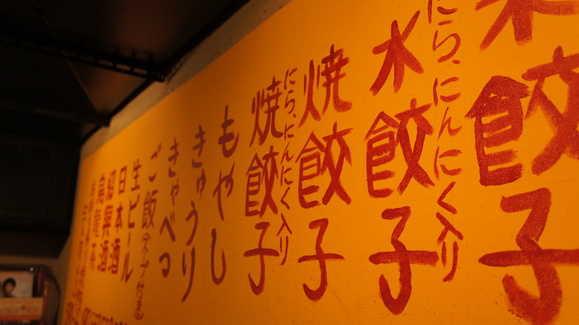 水餃子
にら、にんにく入り
水餃子
焼餃子
にら、にんにく入り
焼餃子
もやし
きゅうり
きゃべつ
ご飯(スープ付き)
生ビール
日本酒
紹興酒